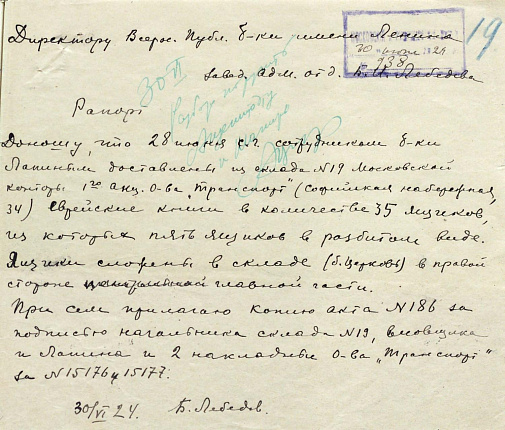 19
Директору Всерос. Публ. б-ки имени Ленина
30 июн 24
938
завед. адм. отд. Б. И. Лебедева
30 VI
Рапорт
Доношу, что 28 июня с.г. сотрудником б-ки
Лапиным доставлены из склада N19 Московской
конторы 1го акц. О-ва „Транспорт" (Софийская набережная,
34) Еврейские книги в количестве 35 ящиков,
из которых пять ящиков в разбитом виде.
Ящики сложены в складе (б. Церковь) в правой
стороне центральной главной части.
При сем прилагаю копию акта N186 за
подписью начальника склада N19, весовщика
и Лапина и 2 накладные О-ва „Транспорт"
за N15176 и 15177.
30/VI 24. Б. Лебедев.